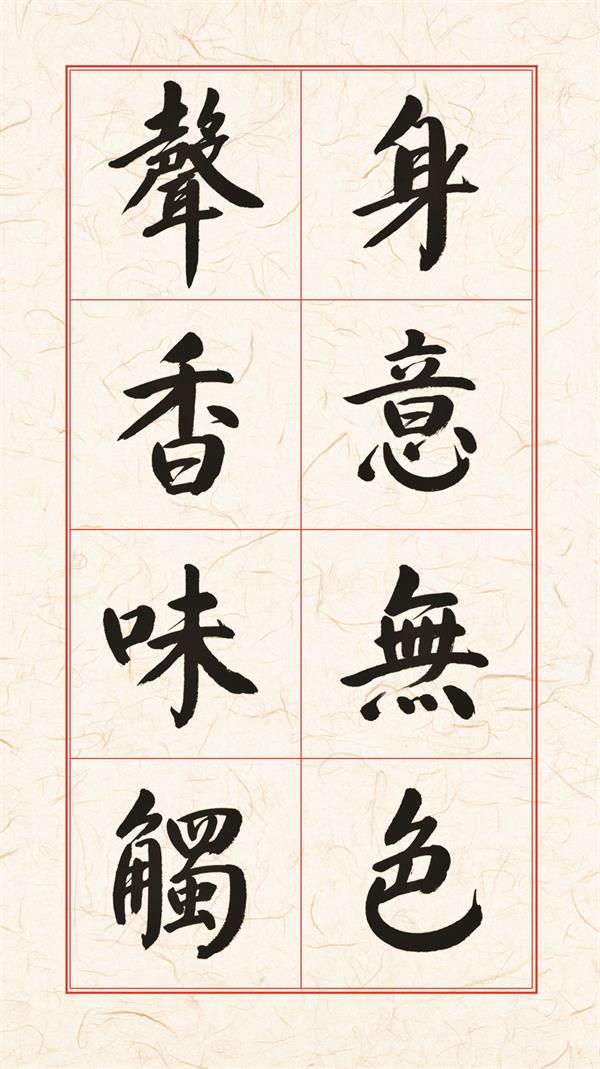 身意無色
聲香味觸